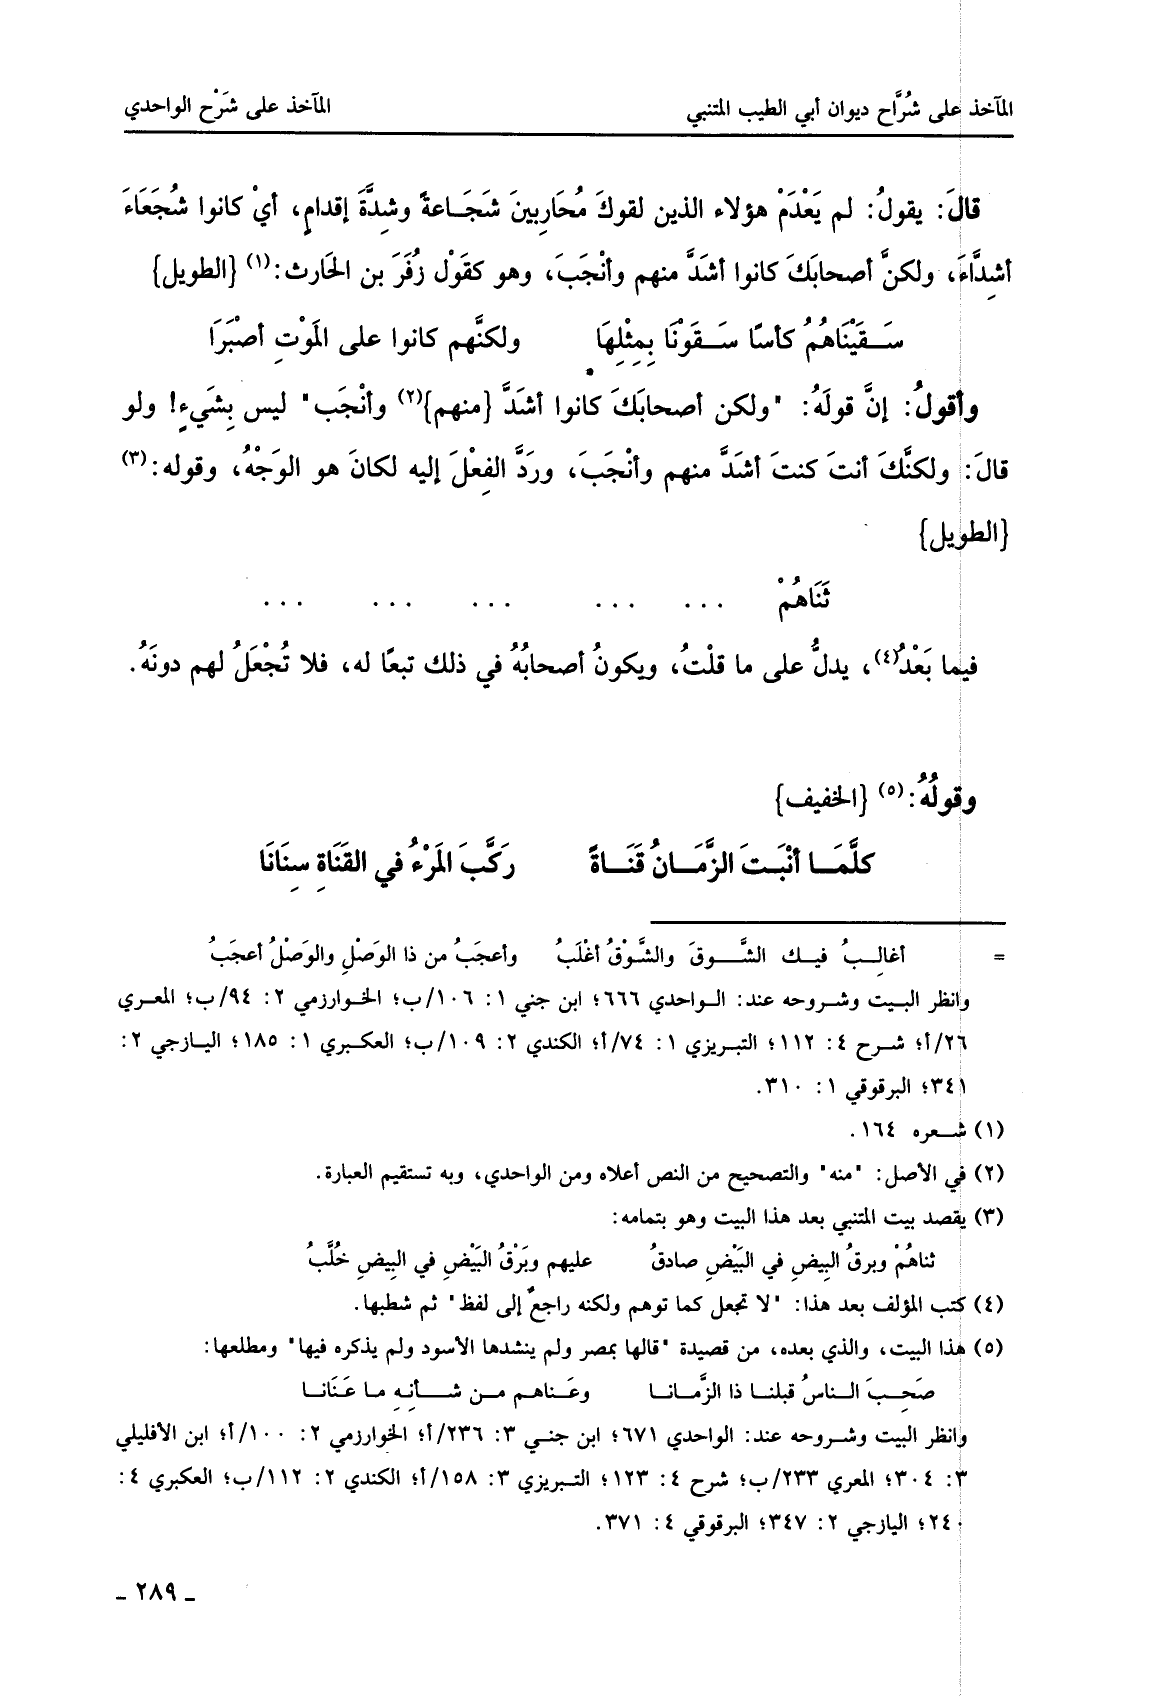 المآخذ على شُرَّاح ديوان أبي الطيب المتنبي المآخذ على شَرْح الواحدي
قالَ: يقولُ: لم يَعْدَمْ هؤلاء الذين لقوكَ مُحَاربينَ شَجَـاعةً وشِدَّةَ إقدامٍ، أيْ كانوا شُجَعَاءَ
أشِدَّاءَ، ولكنَّ أصحابَكَ كانوا أشَدَّ منهم وأنْجَبَ، وهو كقَوْل زُفَرَ بن الحَارث:(١) {الطويل}
سَـقَيْنَاهُمُ كأسًا سَـقَوْنَا بِمِثْلِهَا ولكنَّهم كانوا على المَوْتِ أصْبَرَا
وأقولُ: إنَّ قولَهُ: "ولكن أصحابَكَ كانوا أشَدَّ {منهم}(٢) وأنْجَب" ليس بِشَيءٍ! ولو
قالَ: ولكنَّكَ أنتَ كنتَ أشَدَّ منهم وأنْجَبَ، وردَّ الفِعْلَ إليه لكانَ هو الوَجْهُ، وقوله:(٣)
{الطويل}
ثَنَاهُمْ ... ... ... ... ...
فيما بَعْدُ(٤)، يدلُّ على ما قلْتُ، ويكونُ أصحابُهُ في ذلك تبعًا له، فلا تُجْعَلُ لهم دونَهُ.
وقولُهُ:(٥) {الخفيف}
كلَّمَـا أنْبَـتَ الزَّمَـانُ قَنَـاةً رَكَّبَ المَرْءُ في القَنَاةِ سِنَانَا
= أغالِـبُ فيـك الشَّـوقَ والشَّوْقُ أغْلَبُ وأعجَبُ من ذا الوَصْلِ والوَصْلُ أعجَبُ
وانظر البيت وشروحه عند: الواحدي ٦٦٦؛ ابن جني ١: ١٠٦/ب؛ الخوارزمي ٢: ٩٤/ب؛ المعري
٢٦/أ؛ شرح ٤: ١١٢؛ التبريزي ١: ٧٤/أ؛ الكندي ٢: ١٠٩/ب؛ العكبري ١: ١٨٥؛ اليازجي ٢:
٣٤١؛ البرقوقي ١: ٣١٠.
(١) شـعره ١٦٤.
(٢) في الأصل: "منه" والتصحيح من النص أعلاه ومن الواحدي، وبه تستقيم العبارة.
(٣) يقصد بيت المتنبي بعد هذا البيت وهو بتمامه:
ثناهُمْ وبرقُ البِيضِ في البَيْضِ صادقُ عليهم وبَرْقُ البَيْضِ في البِيضِ خُلَّبُ
(٤) كتب المؤلف بعد هذا: "لا تجعل كما توهم ولكنه راجعٌ إلى لفظ" ثم شطبها.
(٥) هذا البيت، والذي بعده، من قصيدة "قالها بمصر ولم ينشدها الأسود ولم يذكره فيها" ومطلعها:
صَحِـبَ النـاسُ قبلنـا ذا الزَّمـانـا وعَـناهـم مـن شـأنِـهِ مـا عَـنَانـا
وانظر البيت وشروحه عند: الواحدي ٦٧١؛ ابن جني ٣: ٢٣٦/أ؛ الخوارزمي ٢: ١٠٠/أ؛ ابن الأفليلي
٣: ٣٠٤؛ المعري ٢٣٣/ب؛ شرح ٤: ١٢٣؛ التبريزي ٣: ١٥٨/أ؛ الكندي ٢: ١١٢/ب؛ العكبري ٤:
٢٤٠؛ اليازجي ٢: ٣٤٧؛ البرقوقي ٤: ٣٧١.
ـ ٢٨٩ ـ